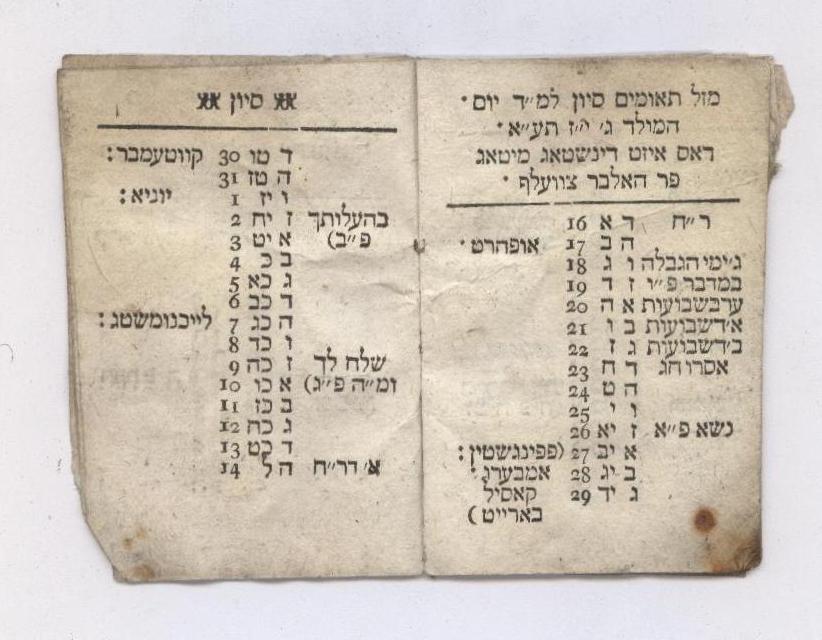 מזל תאומים סיון למ״ד יום ·
המולד ג׳ י״ז תע״א ·
דאס איזט דינשטאג מיטאג
פר האלבר צוועלף ·
ר״ח ד א 16
ה ב 17 אופהרט ·
ג׳ימי הגבלה ו ג 18
במדבר פ״ו ז ד 19
ערב שבועות א ה 20
א׳דשבועות ב ו 21
ב׳דשבועות ג ז 22
אסרו חג ד ח 23
ה ט 24
ו י 25
נשא פ״א ז יא 26
א יב 27 (פפינגשטין :
ב יג 28 אמבערג ·
ג יד 29 קאסיל
בארייט )
סיון
ד טו 30 קווטעמבר :
ה טז 31
ו יז 1 יוניא :
בהעלותך ז יח 2
פ״ב) א יט 3
ב כ 4
ג כא 5
ד כב 6
ה כג 7 לייכנומשטג :
ו כד 8
שלח לך ז כה 9
ומ״ה פ״ג) א כו 10
ב כז 11
ג כח 12
ד כט 13
א׳ דר״ח ה ל 14